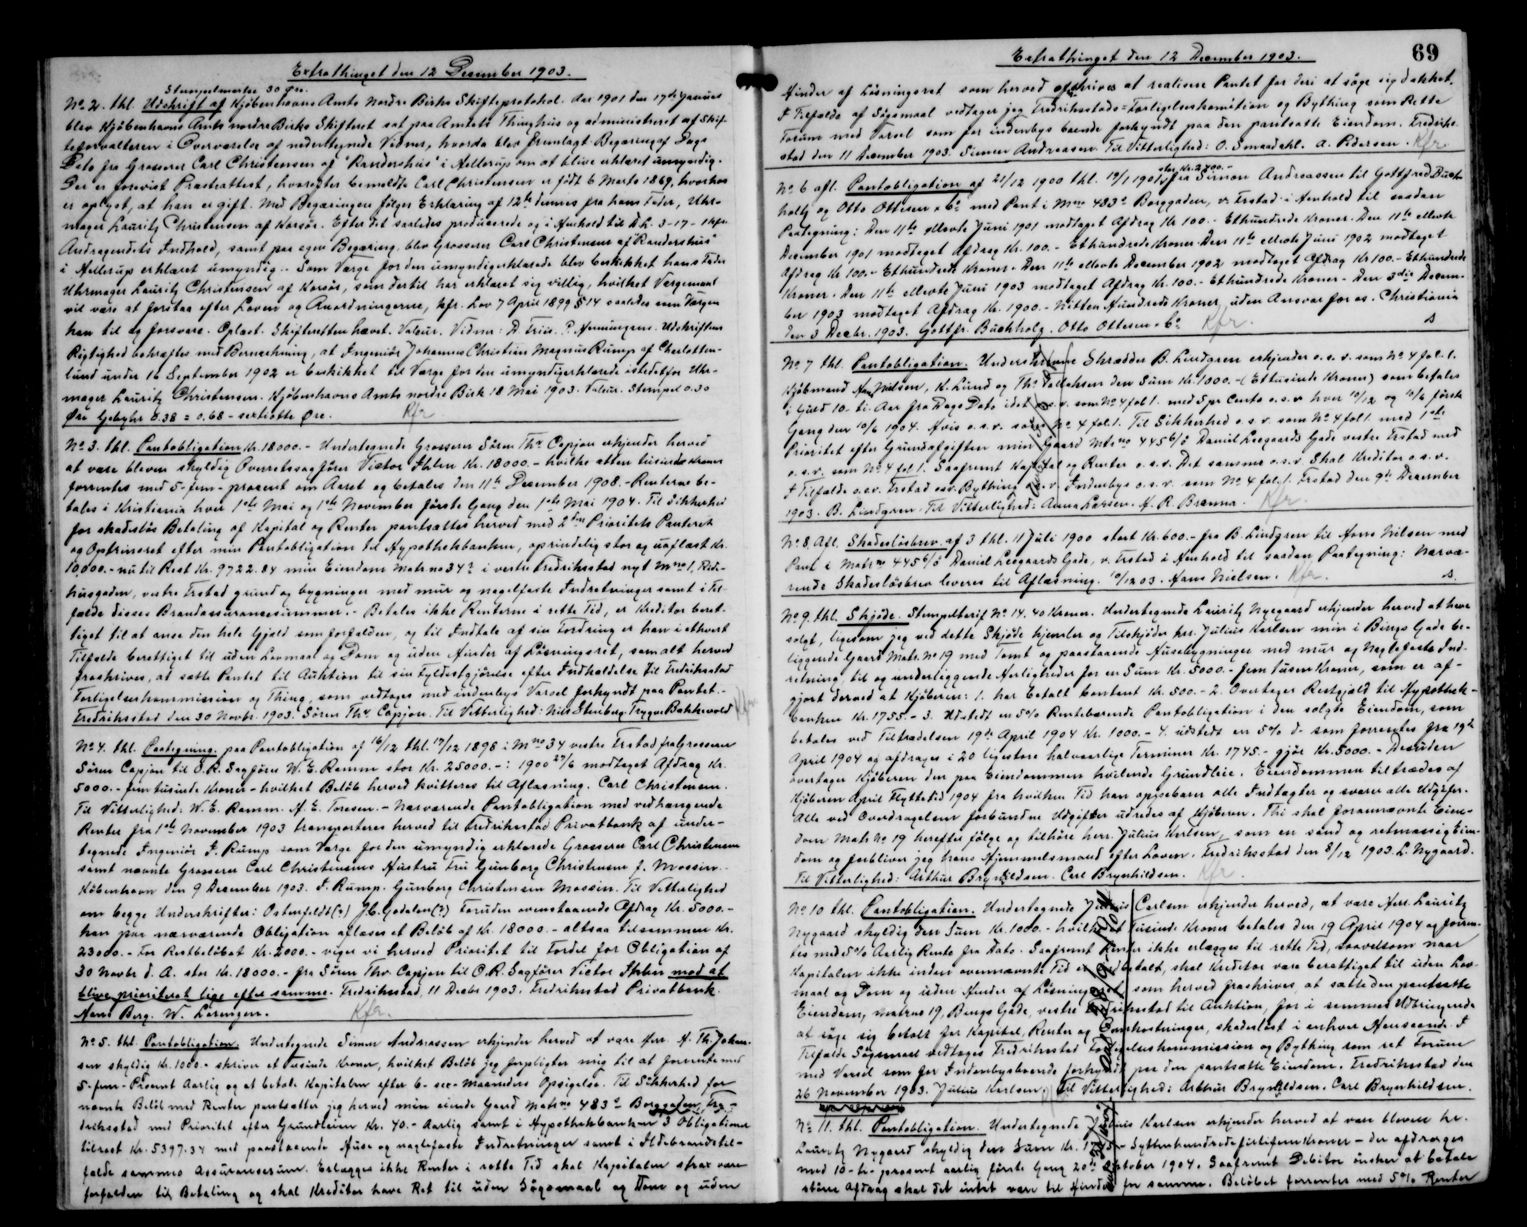 Extrathinget den 12 December 1903.
Stempelmærke 30 Øre.
No 2. thl. Udskrift af Kjøbenhavns Amts Nordre Birks Skifteprotokol. Aar 1901 den 17de Januar
blev Kjøbenhavns Amts nordre Birks Skifteret sat paa Amtets Thinghus og administreret af Skif-
teforvalteren i Overværelse af undertegnede Vidner, hvorda blev fremlagt Begæring af Dags
Dato fra Grosserer Carl Christensen af "Randershus" i Hellerup om at blive erklæret umyndig.
Der er forevist Præstattest, hvorefter bemeldte Carl Christensen er født 6 Marts 1869, hvorhos
er oplyst, at han er gift. Med Begæringen følger Erklæring af 12te dennes fra hans Fader, Uhr-
mager Lauritz Christensen af Korsør. Efter det saaledes producerede og i Henhold til D.L. 3-17-
Andragendets Indhold, samt paa egen Begæring blev Grosserer Carl Christensen af "Randershus"
i Hellerup erklæret umyndig. Som Værge for den umyndigerklærede blev beskikket hans Fader
Uhrmager Lauritz Christensen af Korsør, som dertil har erklæret sig villig, hvilket Værgemaal
vil være at forestaa efter Loven og Anordningerne, kfr. Lov 7 April 1899 § 14 saaledes som Værgen
han til og forsvare. Oplæst. Skifteretten hævet. Valeur. Vidner: A Friis. P. Henningsen. Udskriftens
Rigtighed bekræftes med Bemærkning, at Ingeniør Johannes Christian Magnus Rump af Charlotten-
lund under 16 September 1902 er beskikket til Værge for den umyndigerklærede istedetfor Uhr-
mager Lauritz Christensen. Kjøbenhavns Amts nordre Birk 18 Mai 1903. Valeur. Stempel 0.30
Øre Gebyhr 0.38 = 0.68 - sextiotte Øre. Kfr
No 3. thl. Pantobligation Kr. 18000.- Undertegnede Grosserer Søren Thv. Capjon erkjender herved
at være bleven skyldig Overretssagfører Victor Kr. 18000.- hvilke atten tusinde Kroner
forrentes med 5-fem-procent om Aaret og betales den 11te December 1908.- Renterne be-
tales i Kristiania hver 1ste Mai og 1ste November første Gang den 1ste Mai 1904. Til Sikkerhed
for skadesløs Betaling af Kapital og Renter pantsættes herved med 2den Prioritets Panteret
og Optrinsret efter min Pantobligation til Hypothekbanken, oprindelig stor og uaflæst Kr.
10.000.- nu til Rest Kr. 9722.84 min Eiendom Matr no 34 i vestre Fredriksstad nyt Mno 1,
husgaden, vestre Frstad grund og bygninger med mur og nagelfaste Indretninger samt i Til-
fælde disses Brandassurancesummer.- Betales ikke Renterne i rette Tid, er Kreditor beret-
tiget til at anse den hele Gjæld som forfalden, og til Indtale af sin Fordring er han i ethvert
Tilfælde berettiget til uden Lovmaal og Dom og uden Hinder af Løsningsret, som alt herved
fraskrives, at sætte Pantet til Auktion til sin Fyldestgjørelse efter Indkaldelse til Fredriksstad
Forligelseskommission og Thing, som vedtages med indenbys Varsel forkyndt paa Pantet.-
Fredriksstad den 30 Novbr. 1903. Søren Thv. Capjon. Til Vitterlighed: Nils Stenberg. Trygve Bakkevold Kfr
No 4. thl. Paategning paa Pantobligation af 16/12 thl. 17/12 1898 i Mno 34 vestre Frstad fra Grosserer
Søren Capjon til O.R. Sagfører W. E. Ramm stor Kr. 25000.-: 1900 27/6 modtaget Afdrag Kr.
5000.- fem tusinde Kroner - hvilket Beløb herved kvitteres til Aflæsning. Carl Christensen.
Til Vitterlighed: W. E. Ramm. A. E. Toresen.- Nærværende Pantobligation med vedhængende
Renter fra 1ste November 1903 transporteres herved til Fredriksstad Privatbank af under-
tegnede Ingeniør J. Rump som Værge for den umyndig erklærede Grosserer Carl Christensen
samt nævnte Grosserer Carl Christensens Hustru Fru Gunborg Christensen f. Mossin.
Kjøbenhavn den 9 December 1903. J. Rump. Gunborg Christensen Mossin. Til Vitterlighed
om begge Underskrifter: Ostenfeldt(?) J.C. Godalen(?) Foruden ovenstaaende Afdrag Kr. 5000.-
kan paa nærværende Obligation aflæses et Beløb af Kr. 18000.- altsaa tilsammen Kr.
23000.- For Restbeløbet Kr. 2000.- viger vi herved Prioritet til Fordel for Obligation af
30 Novbr d. A. stor Kr. 18000.- fra Søren Thv. Capjon til O.R. Sagfører Victor med at
blive prioriteret lige efter samme. Fredriksstad, 11 Decbr 1903. Fredriksstad Privatbank.
Hans Berg. W. Lorentzen. Kfr.
No 5. thl. Pantobligation. Undertegnede Simen Andreassen erkjender herved at være Herr H. Th. Johan-
sen skyldig Kr. 1000.- skriver et tusinde Kroner, hvilket Beløb jeg forpligter mig til at forrente med
5-fem-Procent Aarlig og at betale Kapitalen efter 6-sex-Maaneders Opsigelse. Til Sikkerhed for
nævnte Beløb med Renter pantsætter jeg herved min eiende Gaard Matr no 483 c Borggaden, Fre-
driksstad med Prioritet efter Grundleien Kr. 40.- Aarlig samt i Hypothekbanken 3 Obligationer
tilrest Kr. 5397.34 med paastaaende Huse og nagelfaste Indretninger samt i Ildsbrandstil-
fælde sammes Assurancesum. Erlægges ikke Renter i rette Tid skal Kapitalen strax være
forfalden til Betaling og skal Kreditor have Ret til uden Søgsmaal og Dom og uden
Extrathinget den 12 December 1903.
69
Hinder af Løsningsret som herved afskrives at realisere Pantet for deri at søge sig dækket.
I Tilfælde af Søgsmaal vedtager jeg Fredriksstads Forligelseskomition og Bything som Rette
Forum med Varsel som for indenbys boende forkyndt paa den pantsatte Eiendom. Fredriks-
stad den 11 December 1903. Simen Andreassen. Til Vitterlighed: O. Smaadahl. A. Pedersen. Kfr.
stor Kr. 2400.-
No 6 afl. Pantobligation af 21/12 1900 thl. 1901 fra Simon Andreassen til Gottfred Buch-
holtz og Otto Ottesen & Co med Pant i Mno 483 c Borggaden, v. Frstad i Henhold til saadan
Paategning: Den 11te ellevte Juni 1901 modtaget Afdrag Kr. 100.- Ethundrede Kroner. Den 11te ellevte
December 1901 modtaget Afdrag Kr. 100.- Ethundrede Kroner. Den 11te ellevte Juni 1902 modtaget
Afdrag Kr. 100.- Ethundrede Kroner. Den 11te ellevte December 1902 modtaget Afdrag Kr 100.- Ethundrede
Kroner. Den 11te ellevte Juni 1903 modtaget Afdrag Kr. 100.- Ethundrede Kroner. Den 3die Decem-
ber 1903 modtaget Afdrag Kr. 1900.- Nitten Hundrede Kroner, uden Ansvar for os. Christiania
den 3 Decbr. 1903. Gottfr. Buchholz. Otto Ottesen & Co Kfr.
No 7 thl. Pantobligation. Undertegnede Skrædder B. Lindgren erkjender o.s.v. som No 4 fol. 1.
Kjøbmand Nilsen, K. Lund og Th. den Sum Kr. 1000.- (Ettusinde Kroner) som betales
i Guld 10. ti. Aar fra Dags Dato idet o.s.v. som No 4 fol 1. med 5 pr Cento o.s.v hver 10/12 og 10/6 første
Gang den 10/6 1904. Avis o.s.v. som No 4 fol. 1. Til Sikkerhed o.s.v. som No 4 fol. 1. med 1ste
Prioritet efter Grundafgiften min Gaard Mtr no 445 b Daniel Leegaards Gade vestre Frstad med
o.s.v. som No 4 fol. 1. Saafremt Kapital og Renter o.s.v. Det samme o.s.v. Skal Kreditor o.s.v.
I Tilfælde o.s.v. Frstad o.s.v. Bything o.s.v. Indenbys o.s.v. som No 4 fol. 1. Frstad den 9de December
1903. B. Lindgren. Til Vitterlighed: Anna Larsen. H. R. Brænne. Kfr.
No 8. Afl. Skadesløsbrev af 3 thl. 11 Juli 1900 stort Kr. 600.- fra B. Lindgren til Hans Nilsen med
Pant i Matr no 445 b Daniel Leegaards Gade, v. Frstad i Henhold til saadan Paategning: Nærvæ-
rende Skadesløsbrev leveres til Aflæsning. 9/12 03. Hans Nielsen. Kfr.
No 9. thl. Skjøde. Stempeltarif No 14. 40 Kroner. Undertegnede Lauritz Nygaard erkjender herved at have
solgt, ligesom jeg ved dette Skjøde hjemler og tilskjøder hr. Julius Karlsen min i Bings Gade be-
liggende Gaard Matr. No 19 med Tomt og paastaaende Husebygninger med mur og Naglefaste Ind-
retning, til og underliggende Herligheder for en Sum Kr. 5000.- fem tusen Kroner, som er af-
gjort derved at Kjøberen: 1. har betalt kontant Kr. 500.- 2. Overtager Restgjæld til Hypothek-
banken Kr. 1755.- 3. Udstedt en 5% Rentebærende Pantobligation i den solgte Eiendom, som
betales ved Tiltrædelsen 19de April 1904 Kr. 1000.- 4. udstedt en 5% d- som forrentes fra 19de
April 1904 og afdrages i 20 ligestore halvaarlige Terminer Kr. 1745.- gjør Kr. 5000.- Desuden
overtager Kjøberen den paa Eiendommen hvilende Grundleie. Eiendommen tiltrædes af
Kjøberen April Flyttetid 1904 fra hvilken Tid han oppebærer alle Indtægter og svarer alle Udgifter.
Alle ved Overdragelsen forbundne Udgifter udredes af Kjøberen. Thi skal forannævnte Eien-
dom Matr. No 19 herefter følge og tilhøre herr. Julius Karlsen, som en sand og retmæssig Eien-
dom og forbliver jeg hans Hjemmelsmand efter Loven. Fredriksstad den 8/12 1903. L. Nygaard.
Til Vitterlighed: Arthur Brynhildsen. Carl Brynhildsen. Kfr.
No 10 thl. Pantobligation. Undertegnede Julius Carlsen erkjender herved, at være Herr. Lauritz
Nygaard skyldig den Sum Kr. 1000.- hvilke Tusinde Kroner betales den 19 April 1904 og forren-
tes med 5% Aarlig Rente fra Dato. Saafremt Renter ikke erlægges til rette Tid, saavelsom naar
Kapitalen ikke inden ovennævnte Tid er betalt, skal Kreditor være berettiget til uden Lov-
maal og Dom og uden Hinder af Løsningsret som herved fraskrives, at sætte den pantsatte
Eiendom, matr no 19, Bings Gade, vestre Fredriksstad til Auktion, for i sammes Udbringende
at søge sig betalt for Kapital, Renter og Omkostninger, skadesløst i enhver Henseende. I
Tilfælde Søgsmaal vedtages Fredriksstad Forligelseskommission og Bything som ret Forum
med Varsel som for Indenbysboende forkyndt paa den pantsatte Eiendom. Fredriksstad den
26 November 1903. Julius Karlsen. Til Vitterlighed: Arthur Brynhildsen. Carl Brynhildsen.
No 11. thl. Pantobligation. Undertegnede Julius Karlsen erkjender herved at være bleven hr.
Lauritz Nygaard skyldig den Sum Kr. 1745 Syttenhundredeførtifem Kroner - der afdrages
med 10-ti-procent aarlig første Gang 20de October 1904. Saafremt Debitor ønsker at betale
større Afdrag skal det intet være til Hinder for samme. Beløbet forrentes med 5% Renter